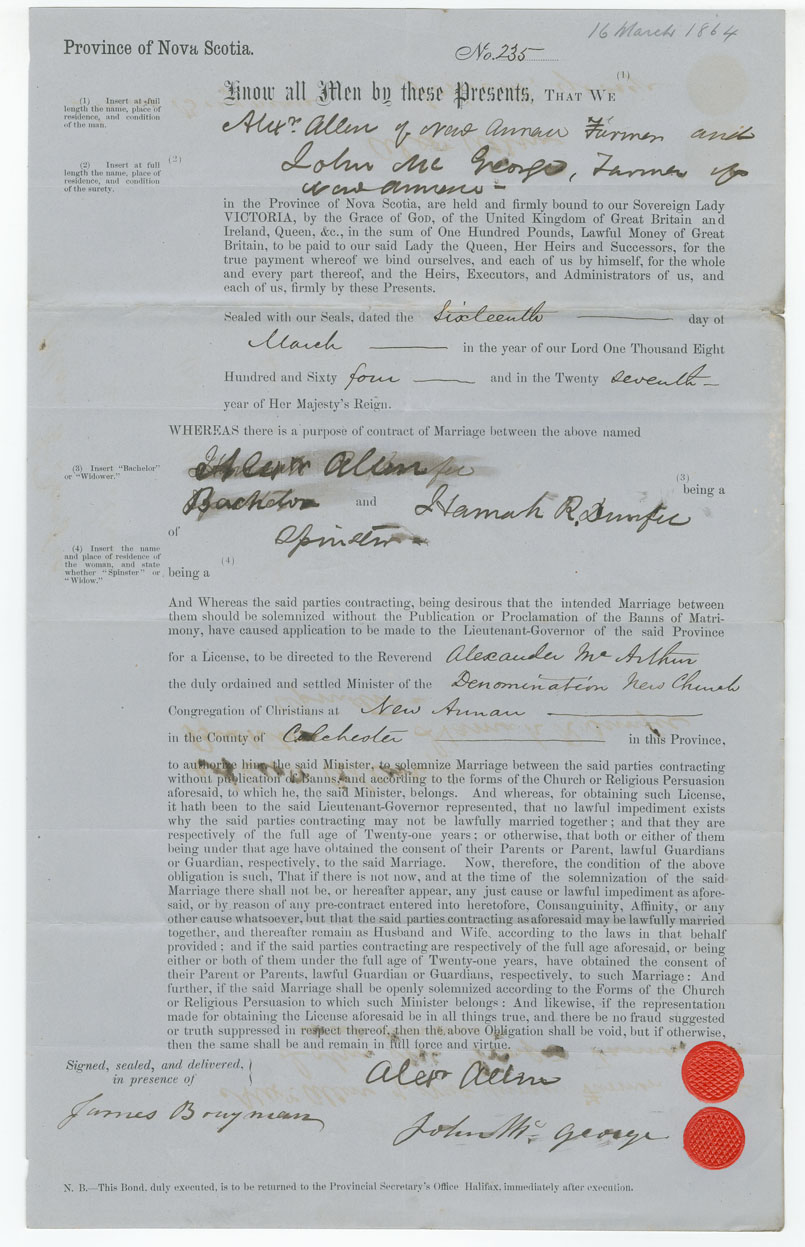 16 March 1864
Province of Nova Scotia.
No. 235
(1)
Know all Men by these Presents, THAT WE
(1) Insert at full
length the name, place of
residence, and condition
of the man.
Alexr. Allen of New Annan Farmer and
(2) Insert at full
length the name, place of
residence, and condition
of the surety.
(2)
John McGeorge, Farmer of
New Annan
in the Province of Nova Scotia, are held and firmly bound to our Sovereign Lady
VICTORIA, by the Grace of God, of the United Kingdom of Great Britain and
Ireland, Queen, &c., in the sum of One Hundred Pounds, Lawful Money of Great
Britain, to be paid to our said Lady the Queen, Her Heirs and Successors, for the
true payment whereof we bind ourselves, and each of us by himself, for the whole
and every part thereof, and the Heirs, Executors, and Administrators of us, and
each of us, firmly by these Presents.
Sealed with our Seals, dated the Sixteenth day of
March in the year of our Lord One Thousand Eight
Hundred and Sixty four and in the Twenty seventh
year of Her Majesty's Reign.
WHEREAS there is a purpose of contract of Marriage between the above named
(3) Insert "Bachelor"
or "Widower."
Alexr Allen
(3)
being a
Bachelor and Hannah R.
of
Spinster
(4) Insert the name
and place of residence of
the woman, and state
whether "Spinster" or
"Widow."
(4)
being a
And Whereas the said parties contracting, being desirous that the intended Marriage between
them should be solemnized without the Publication or Proclamation of the Banns of Matri-
mony, have caused application to be made to the Lieutenant-Governor of the said Province
for a License, to be directed to the Reverend Alexander McArthur
the duly ordained and settled Minister of the Denomination New Church
Congregation of Christians at New Annan
in the County of Colchester in this Province,
to authorize him, the said Minister, to solemnize Marriage between the said parties contracting
without publication of Banns, and according to the forms of the Church or Religious Persuasion
aforesaid, to which he, the said Minister, belongs. And whereas, for obtaining such License,
it hath been to the said Lieutenant-Governor represented, that no lawful impediment exists
why the said parties contracting may not be lawfully married together; and that they are
respectively of the full age of Twenty-one years; or otherwise, that both or either of them
being under that age have obtained the consent of their Parents or Parent, lawful Guardians
or Guardian, respectively, to the said Marriage. Now, therefore, the condition of the above
obligation is such, That if there is not now, and at the time of the solemnization of the said
Marriage there shall not be, or hereafter appear, any just cause or lawful impediment as afore-
said, or by reason of any pre-contract entered into heretofore, Consanguinity, Affinity, or any
other cause whatsoever, but that the said parties contracting as aforesaid may be lawfully married
together, and thereafter remain as Husband and Wife, according to the laws in that behalf
provided; and if the said parties contracting are respectively of the full age aforesaid, or being
either or both of them under the full age of Twenty-one years, have obtained the consent of
their Parent or Parents, lawful Guardian or Guardians, respectively, to such Marriage: And
further, if the said Marriage shall be openly solemnized according to the Forms of the Church
or Religious Persuasion to which such Minister belongs: And likewise, if the representation
made for obtaining the License aforesaid be in all things true, and there be no fraud suggested
or truth suppressed in respect thereof, then the above Obligation shall be void, but if otherwise,
then the same shall be and remain in full force and virtue.
Signed, sealed, and delivered,
in presence of
Alexr Allen
James Brayman
John McGeorge
N. B.—This Bond, duly executed, is to be returned to the Provincial Secretary's Office Halifax, immediately after execution.